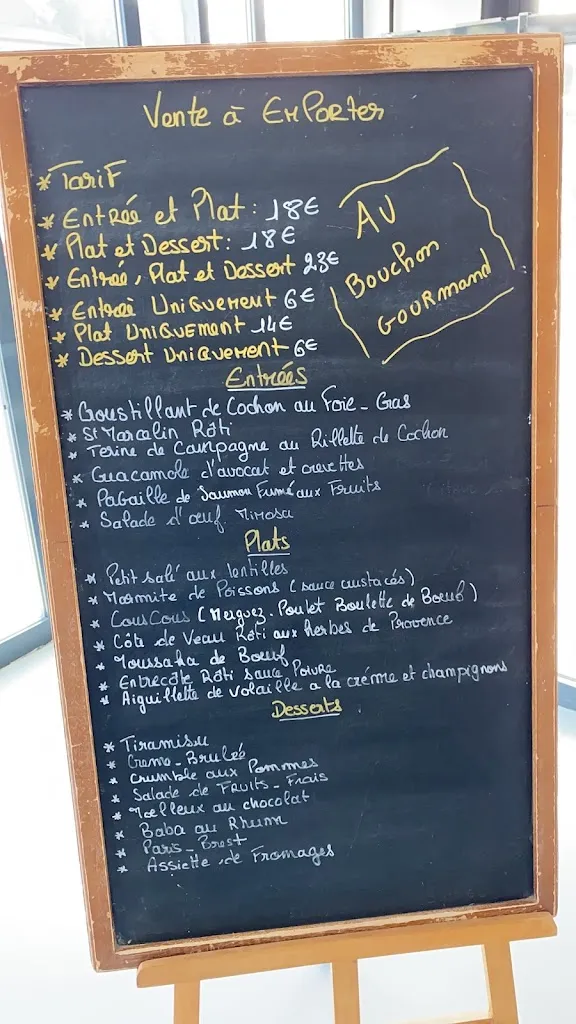 Vente à EMPorter
* Tarif
* Entrée et Plat : 18€
* Plat et Dessert : 18€
* Entrée, Plat et Dessert 23€
* Entrée Uniquement 6€
* Plat Uniquement 14€
* Dessert Uniquement 6€
AU
Bouchon
Gourmand
Entrées
* Croustillant de Cochon au Foie-Gras
* St Marcelin Rôti
* Terine de Campagne au Rillette de Cochon
* Guacamole d'avocat et crevettes
* Pagaille de Saumon Fumé aux Fruits
* Salade d'œuf Mimosa
Plats
* Petit salé aux lentilles
* Marmite de Poissons (sauce crustacés)
* CousCous (Merguez. Poulet Boulette de Bœuf)
* Côte de Veau Rôti aux herbes de Provence
* Moussaka de Bœuf
* Entrecôte Rôti sauce Poivre
* Aiguillette de volaille a la crème et champignons
Desserts
* Tiramisu
* Creme-Brulée
* Crumble aux Pommes
* Salade de Fruits-Frais
* Moelleux au chocolat
* Baba au Rhum
* Paris-Brest
* Assiette de Fromages